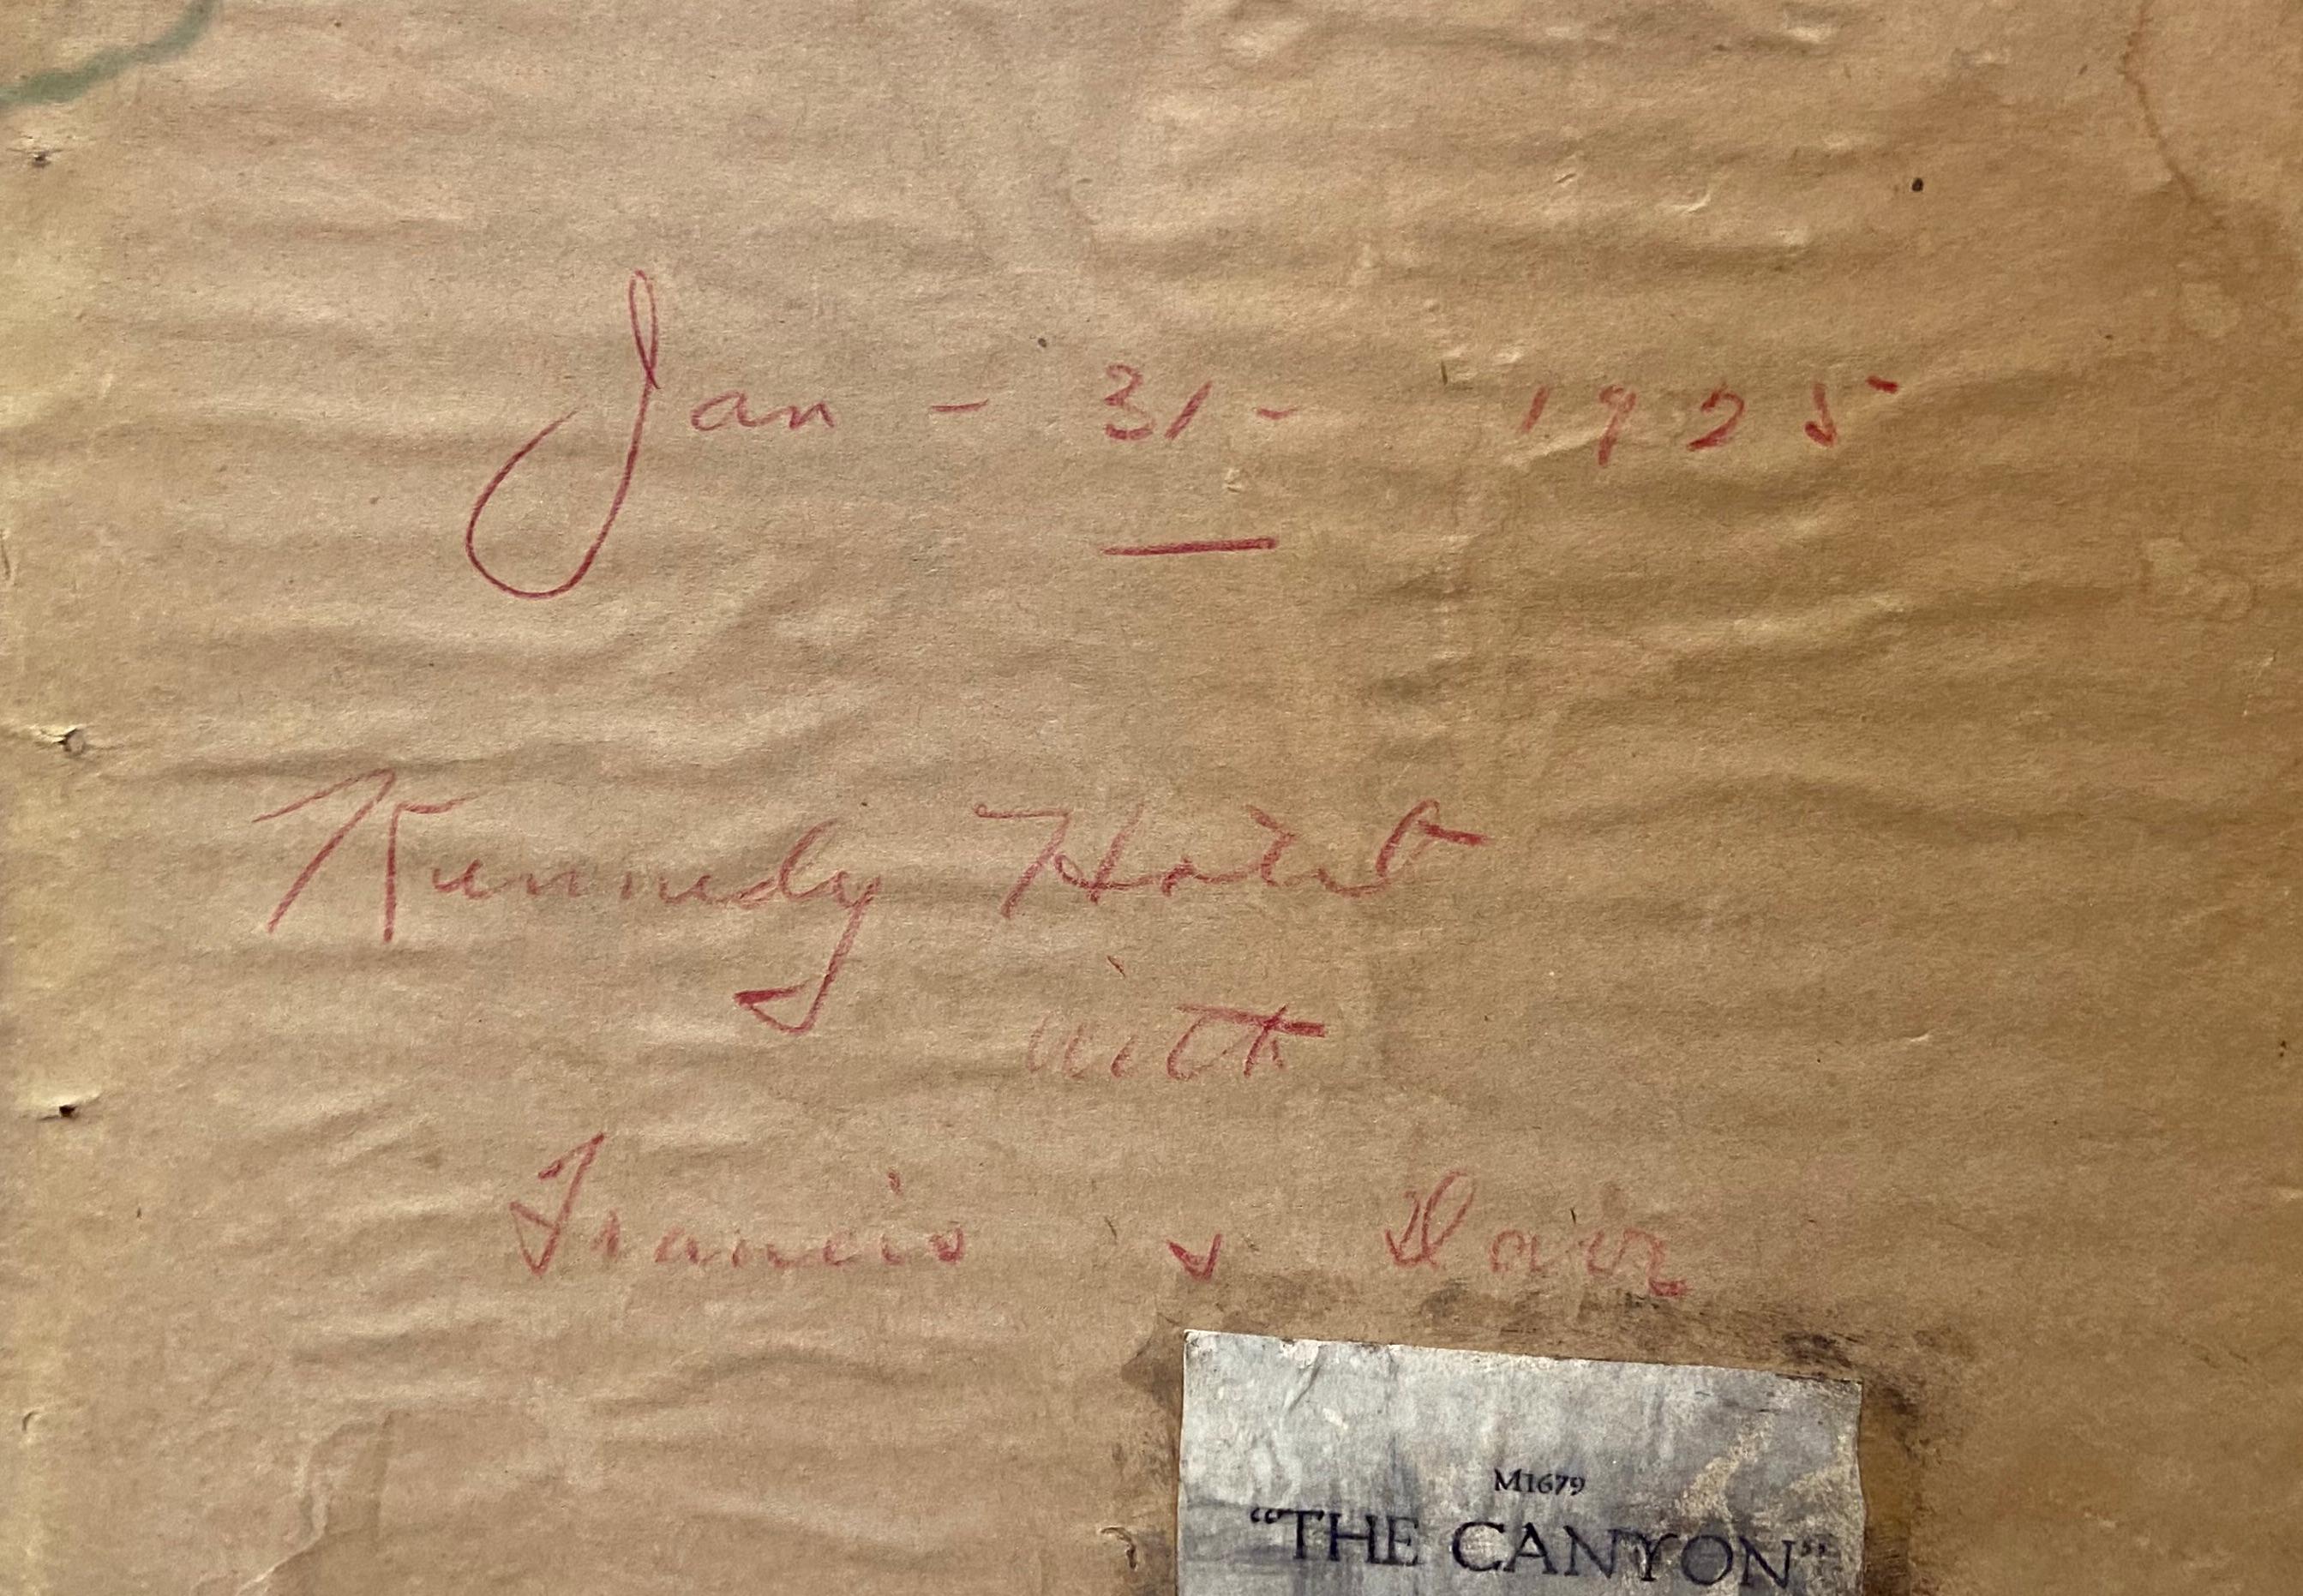 Jan - 31 - 1925
Kennedy
with
Francis
M1679
"THE CANYON"